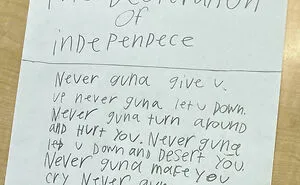 The Decleration
Of
independece
Never guna give u.
ve never guna let u down.
Never guna turn around
and Hurt You. Never guna
let u Down and Desert You.
Never guna make you
cry Never guna